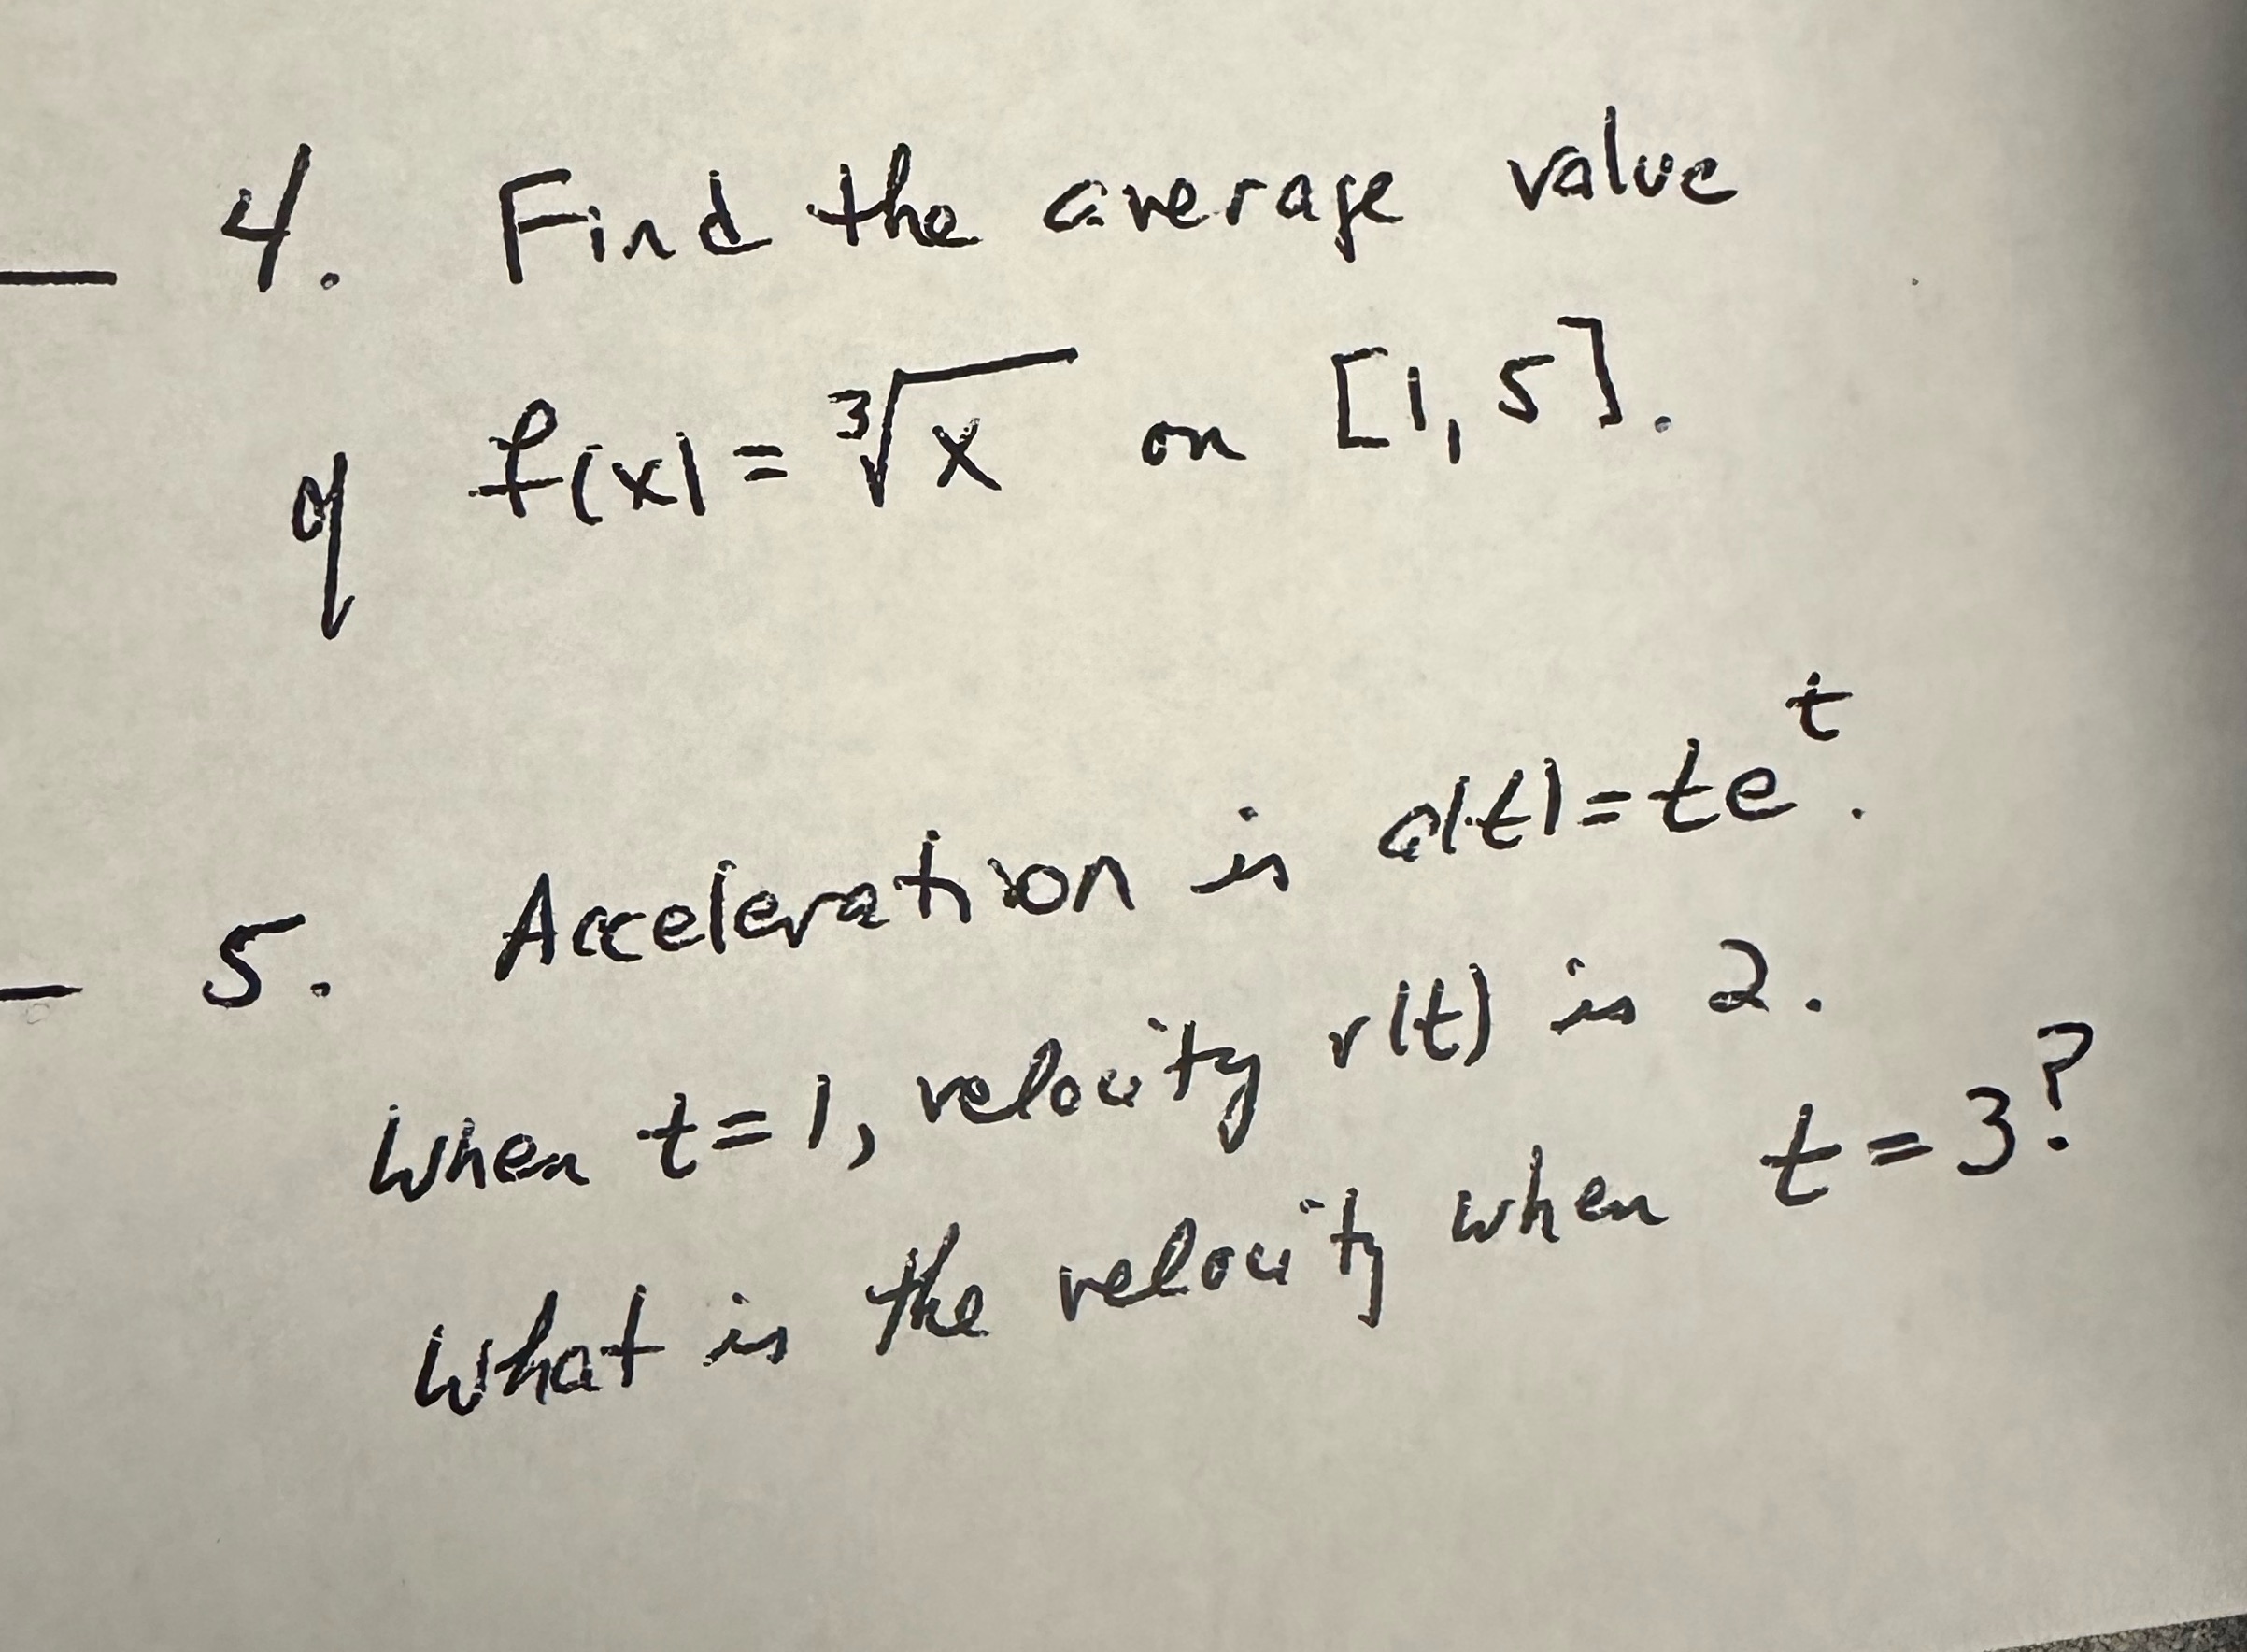 4. Find the average value
of f(x) = ∛x on [1, 5].
5. Acceleration is a(t) = te^t.
When t = 1, velocity v(t) is 2.
What is the velocity when t = 3?